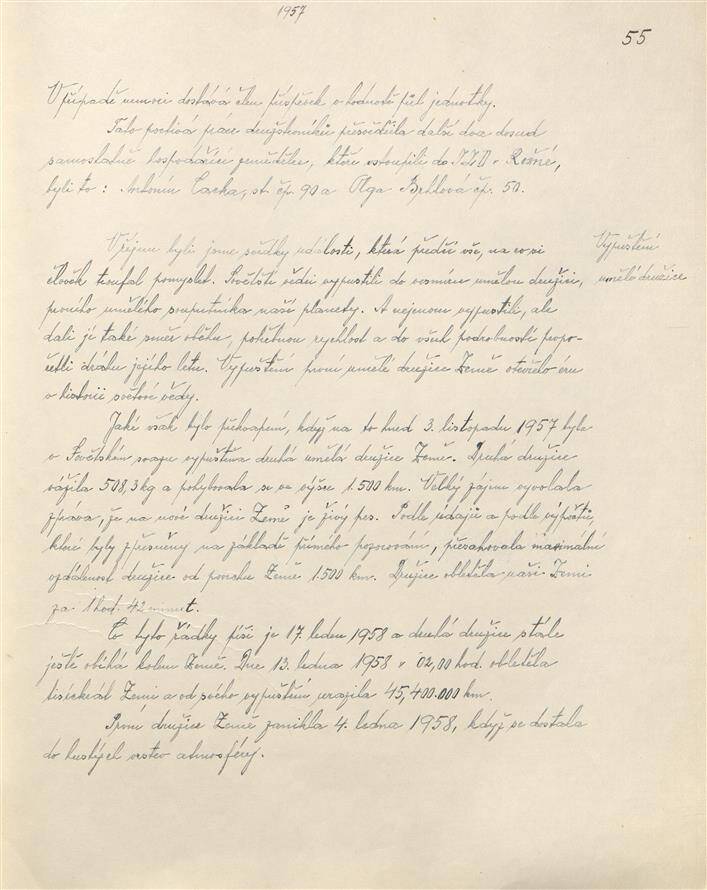 1957
55
V případě nemoci dostává člen příspěvek v hodnotě půl jednotky.
Tato poctivá práce družstevníků přesvědčila další dva dosud
samostatně hospodařící zemědělce, kteří vstoupili do JZD v Rožné,
byli to: Antonín Carka, st. čp. 90 a Olga čp. 50.
V říjnu byli jsme svědky události, která předčí vše, na co si
Vypuštění
člověk troufal pomyslet. Sovětští vědci vypustili do vesmíru umělou družici,
umělé družice
prvního umělého souputníka naší planety. A nejenom vypustili, ale
dali jí také směr oběhu, potřebnou rychlost a do všech podrobností propo-
četli dráhu jejího letu. Vypuštění první umělé družice Země otevřelo éru
v historii světové vědy.
Jaké však bylo překvapení, když na to hned 3. listopadu 1957 byla
v Sovětském svazu vypuštěna druhá umělá družice Země. Druhá družice
vážila 508,3 kg a pohybovala se ve výšce 1.500 km. Velký zájem vyvolala
zpráva, že na nové družici Země je živý pes. Podle údajů a podle výpočtů,
které byly zpřesněny na základě přímého pozorování, přesahovala maximální
vzdálenost družice od povrchu Země 1.500 km. Družice obletěla naši Zemi
za 1 hod. 42 minut.
Co tyto řádky píši je 17. leden 1958 a druhá družice stále
ještě obíhá kolem Země. Dne 13. ledna 1958 v 02,00 hod. obletěla
tisíckrát Zemi a od svého vypuštění urazila 45,400.000 km.
První družice Země zanikla 4. ledna 1958, když se dostala
do hustých vrstev atmosféry.